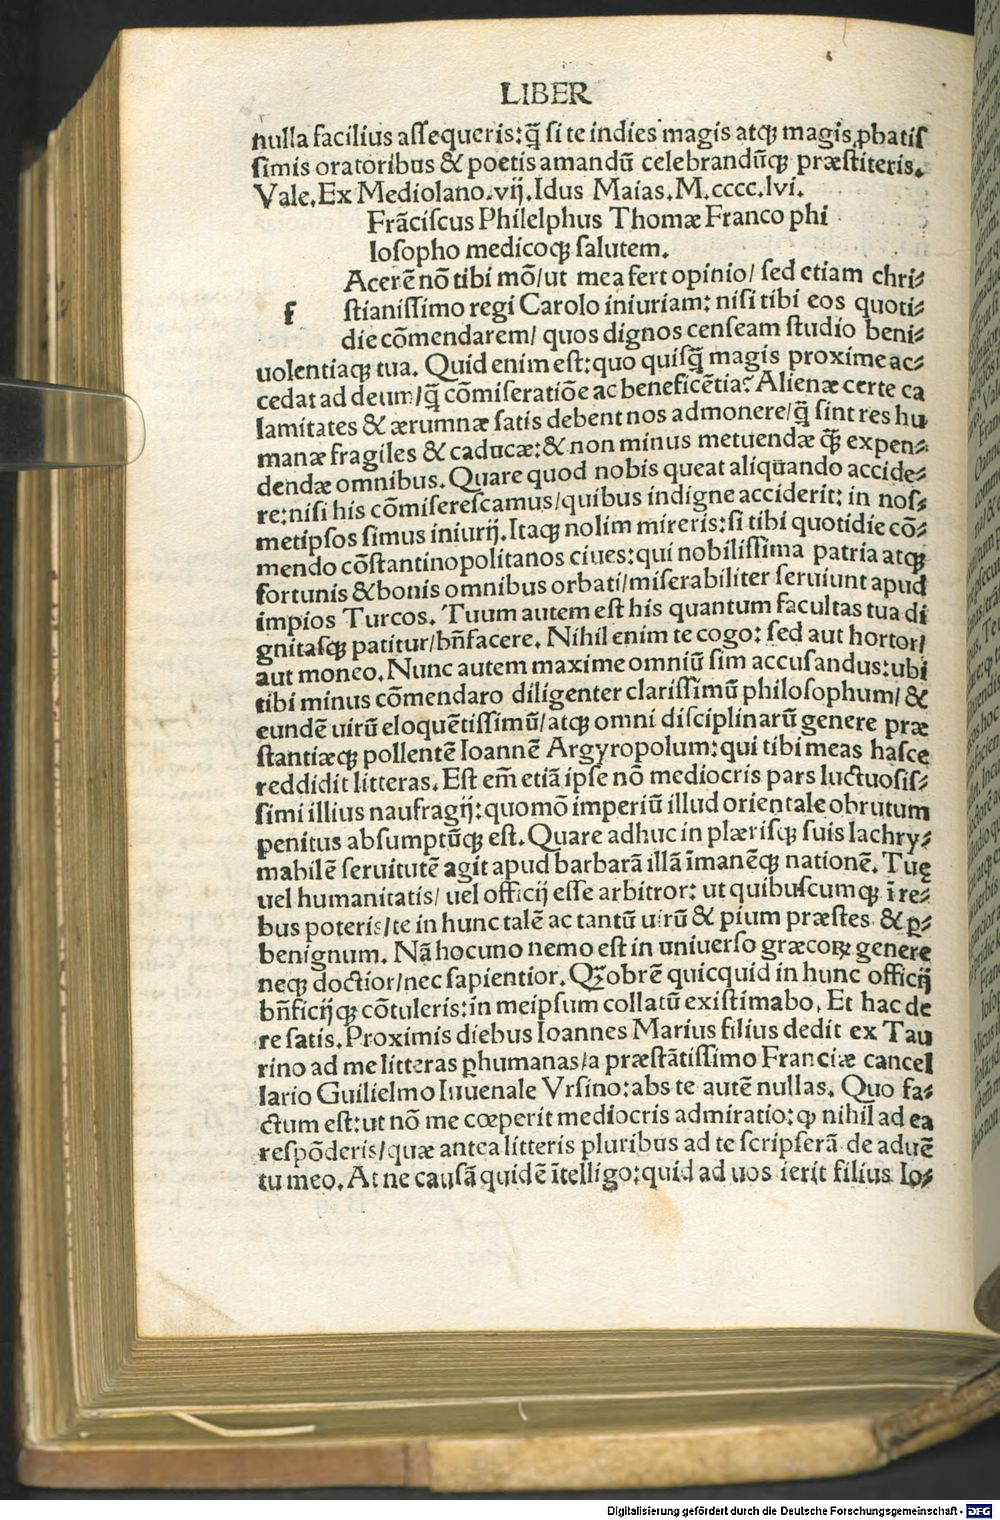 LIBER
nulla facilius aſſequeris:q̄ ſi te indies magis atqꝫ magis ꝓbatiſ
ſimis oratoribus & poetis amandū celebrandūqꝫ præſtiteris.
Vale.Ex Mediolano.vij.Idus Maias.M.cccc.lvi.
Frāciſcus Philelphus Thomæ Franco phi
loſopho medicoqꝫ ſalutem.
Acerē nō tibi mō/ut mea fert opinio/ ſed etiam chri⸗
f ſtianiſſimo regi Carolo iniuriam: niſi tibi eos quoti⸗
die cōmendarem/ quos dignos cenſeam ſtudio beni⸗
uolentiaqꝫ tua. Quid enim eſt:quo quiſq̄ magis proxime ac⸗
cedat ad deum/q̄ cōmiſeratiōe ac beneficētia? Alienæ certe ca
lamitates & ærumnæ ſatis debent nos admonere/q̄ ſint res hu
manæ fragiles & caducæ:& non minus metuendæ q̄ꝫ expen⸗
dendæ omnibus. Quare quod nobis queat aliquando accide⸗
re:niſi his cōmiſereſcamus/quibus indigne acciderit: in noſ⸗
metipſos ſimus iniurij.Itaqꝫ nolim mireris:ſi tibi quotidie cō⸗
mendo cōſtantinopolitanos ciues:qui nobiliſſima patria atqꝫ
fortunis & bonis omnibus orbati/miſerabiliter ſeruiunt apud
impios Turcos. Tuum autem eſt his quantum facultas tua di
gnitaſqꝫ patitur/bn̄facere. Nihil enim te cogo: ſed aut hortor/
aut moneo. Nunc autem maxime omniū ſim accuſandus:ubi
tibi minus cōmendaro diligenter clariſſimū philoſophum/ &
eundē uirū eloquētiſſimū/atqꝫ omni diſciplinarū genere præ
ſtantiæqꝫ pollentē Ioannē Argyropolum:qui tibi meas haſce
reddidit litteras. Eſt em̄ etiā ipſe nō mediocris pars luctuoſiſ⸗
ſimi illius naufragij:quomō imperiū illud orientale obrutum
penitus abſumptūqꝫ eſt. Quare adhuc in plæriſqꝫ ſuis lachry⸗
mabilē ſeruitutē agit apud barbarā illā īmanēqꝫ nationē. Tuę
uel humanitatis/ uel officij eſſe arbitror: ut quibuſcumqꝫ ī re⸗
bus poteris/te in hunc talē ac tantū uirū & pium præſtes & ꝑ⸗
benignum. Nā hoc uno nemo eſt in uniuerſo græcoꝝ genere
neqꝫ doctior/nec ſapientior. Qꝫobrē quicquid in hunc officij
bn̄ficijqꝫ cōtuleris:in meipſum collatū exiſtimabo. Et hac de
re ſatis.Proximis diebus Ioannes Marius filius dedit ex Tau
rino ad me litteras ꝑhumanas/a præſtātiſſimo Franciæ cancel
lario Guilielmo Iuuenale Vrſino:abs te autē nullas. Quo fa⸗
ctum eſt:ut nō me cœperit mediocris admiratio:ꝙ nihil ad ea
reſpōderis/quæ antea litteris pluribus ad te ſcripſerā de aduē
tu meo. At ne cauſā quidē ītelligo:quid ad uos ierit filius Io⸗
Digitalisierung gefördert durch die Deutsche Forschungsgemeinschaft - DFG